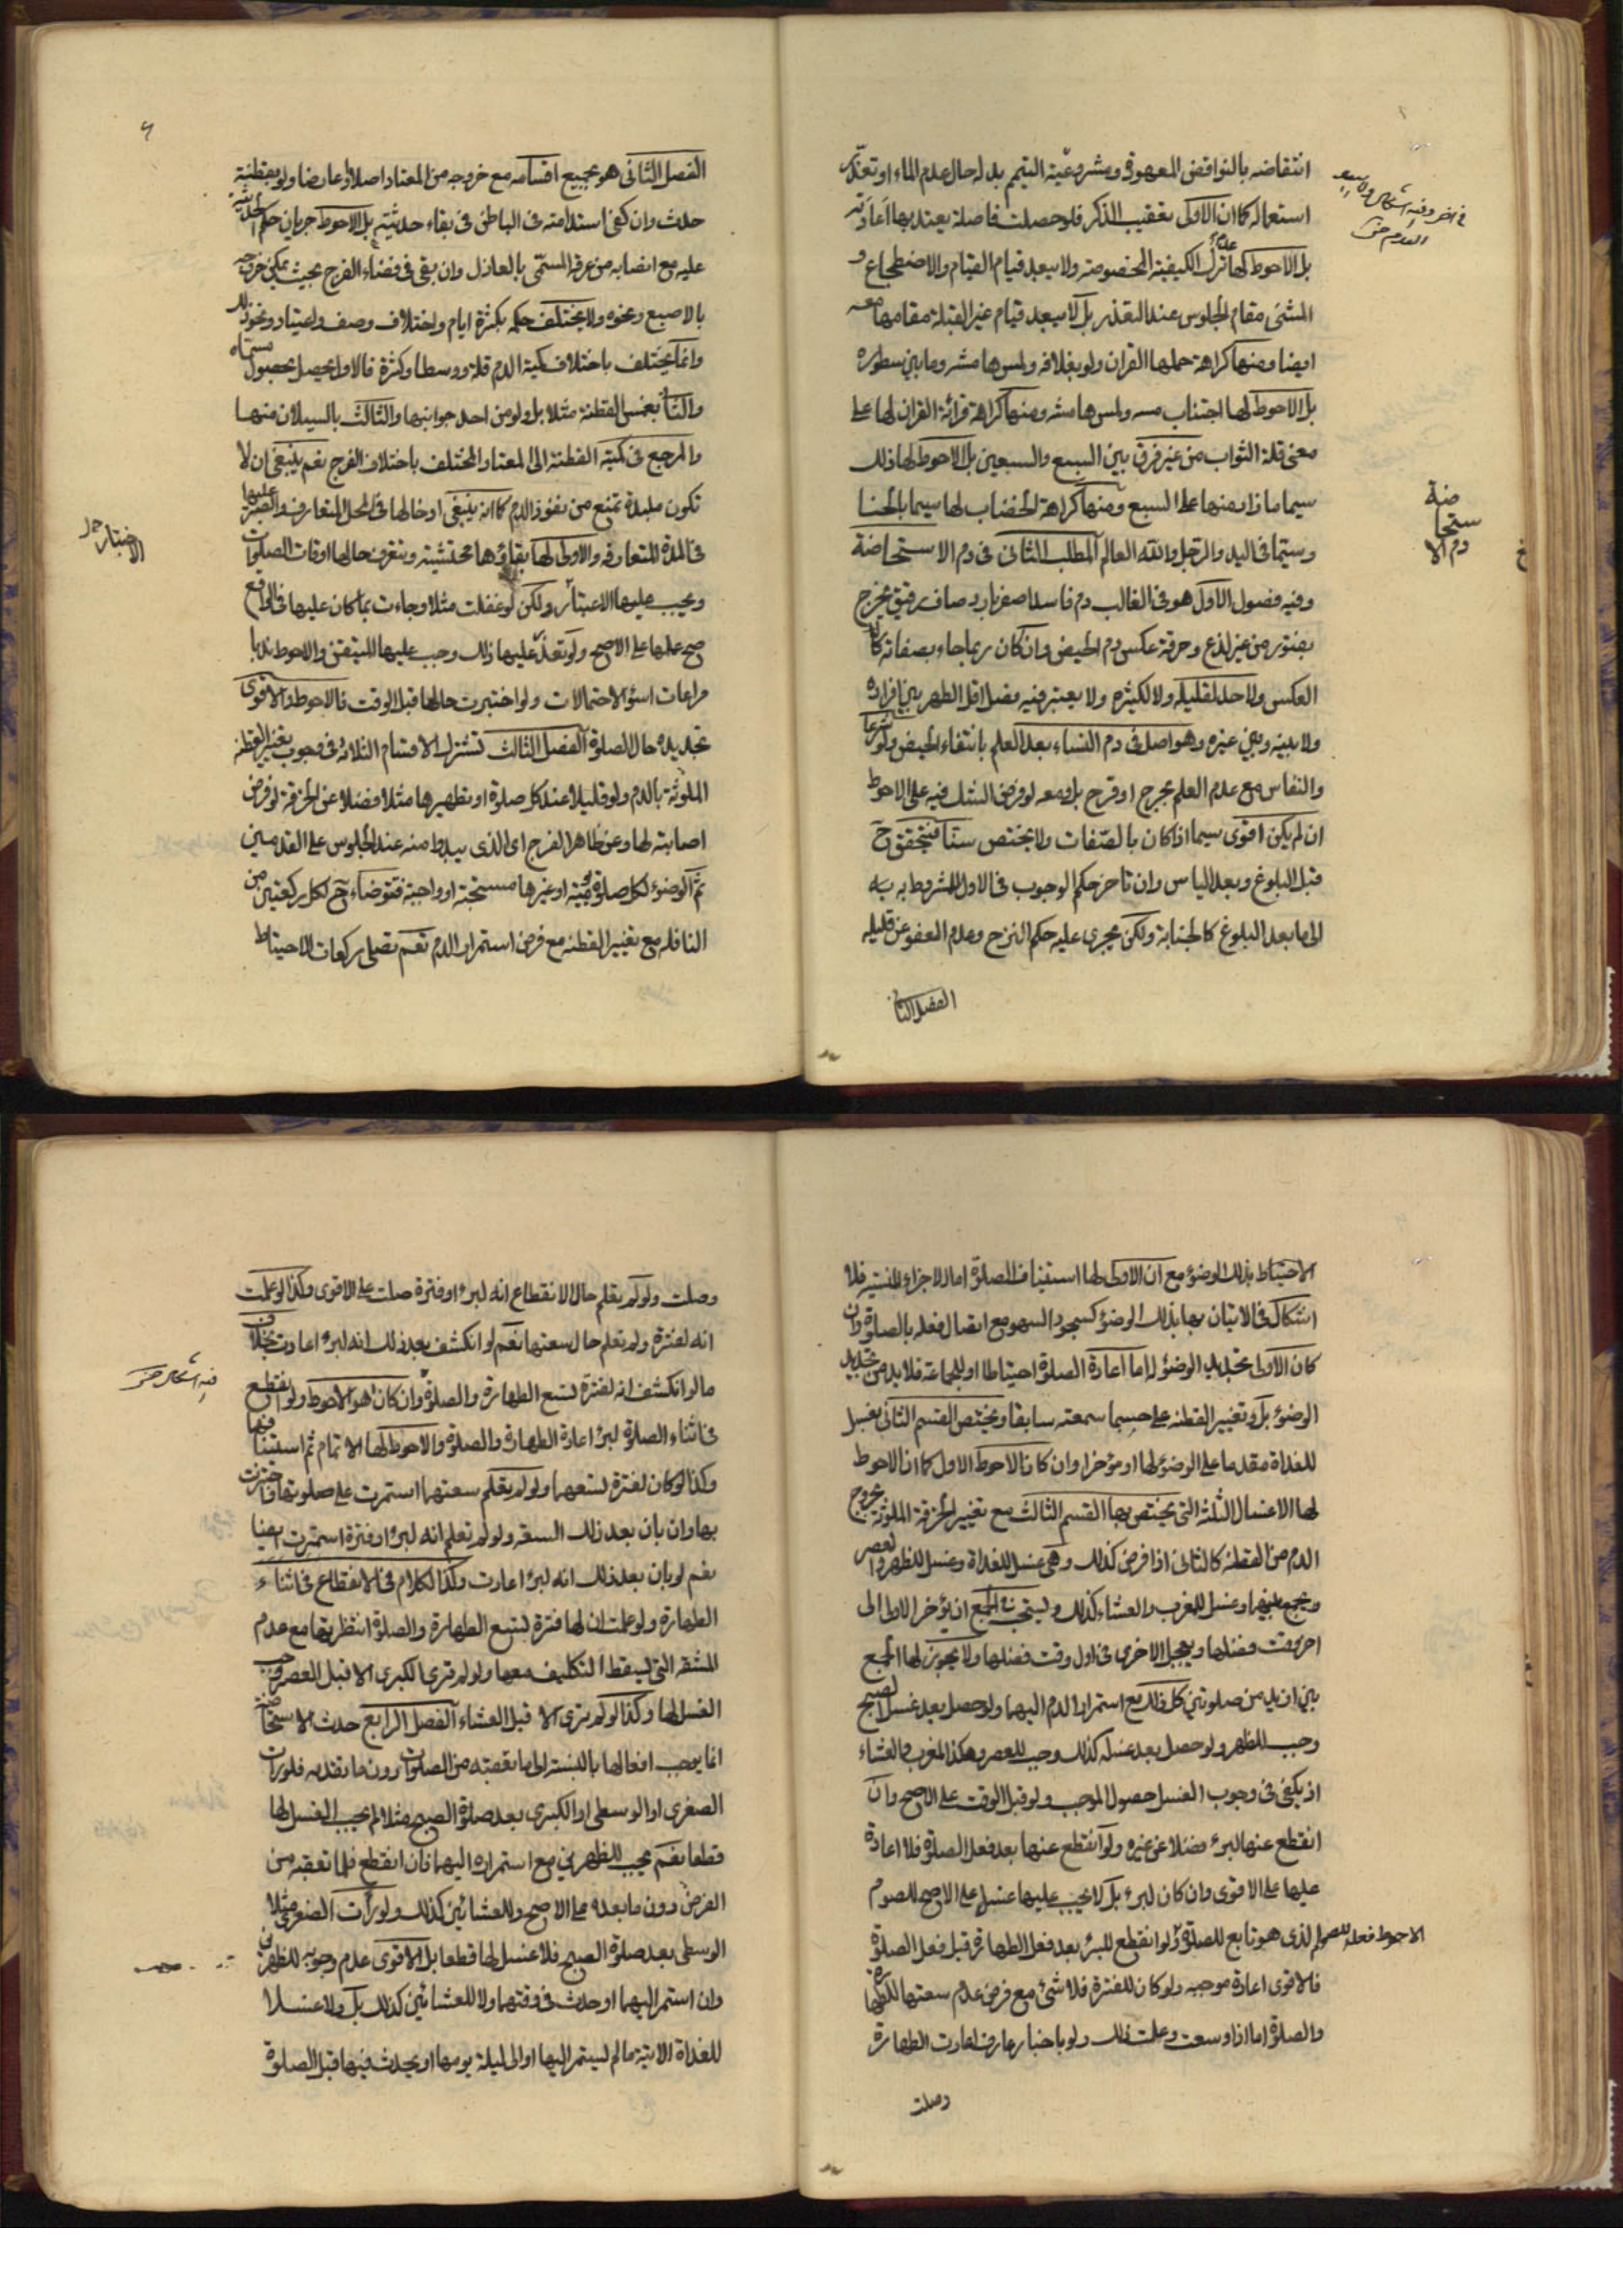 انتقاضه بالنواقض المعهودة وفي مشروعية التيمم بدله حال عدم الماء او تعذر
استعماله كما ان الاولى تعقيب الذكر فلو حصلت فاصلة يعتد بها اعادته
بل الاحوط لها عدم ترك الكيفية المخصوصة ولا يبعد قيام القيام والاضطجاع و
المشي مقام الجلوس عند التعذر بل لا يبعد قيام غير القبلة مقامها معه
ايضا ومنها كراهة حملها القران ولو بغلافه ولمس هامشه وما بين سطوره
بل الاحوط لها اجتناب مسه ولمس هامشه ومنها كراهة قرائة القران لها على
معنى قلة الثواب من غير فرق بين السبع والسبعين بل الاحوط لها ذلك
سيما ما زاد منها على السبع ومنها كراهة الخضاب لها سيما بالحنا
وسيما في اليد والرجل والله العالم المطلب الثاني في دم الاستحاضة
وفيه فصول الاول هو في الغالب دم فاسد اصفر بارد صاف رقيق يخرج
بفتور من غير لذع وحرقة عكس دم الحيض وان كان ربما جاء بصفاته كما ان
العكس ولا حد لقليله ولا لكثيره ولا يعتبر فيه فصل اقل الطهر بين افراده
ولا بينه وبين غيره وهو اصل في دم النساء بعد العلم بانتفاء الحيض ولو شرعا
والنفاس مع عدم العلم بجرح او قرح بل ومعه لو فرض الشك فيه على الاحوط
ان لم يكن اقوى سيما اذا كان بالصفات ولا يختص سنا فيتحقق ح
قبل البلوغ وبعد الياس وان تاخر حكم الوجوب في الاول المشروط به
الى ما بعد البلوغ كالجنابة ولكن يجري عليه حكم النزح وعدم العفو عن قليله
الفصل الثاني
دم الاستحاضة
الفصل الثاني هو بجميع اقسامه مع خروجه من المعتاد اصلا او عارضا ولو بقطنة
حدث وان كفى استدامته في الباطن في بقاء حدثيته بل الاحوط جريان حكم الحدثية
عليه مع انصبابه من عرقه المسمى بالعاذل وان بقي في فضاء الفرج بحيث يمكن خروجه
بالاصبع ونحوه ولا يختلف حكمه بكثرة ايام واختلاف وصف واعتياد ونحو ذلك
وانما يختلف باختلاف كمية الدم قلة ووسطا وكثرة فالاول يحصل بحصول مسماه
والثاني بغمس القطنة مثلا بل ولو من احد جوانبها والثالث بالسيلان منها
والمرجع في كمية القطنة الى المعتاد المختلف باختلاف الفرج نعم ينبغي ان لا
تكون ملبدة تمنع من نفوذ الدم كما انه ينبغي ادخالها في المحل المتعارف والصبر عليها
في المدة المتعارفة والاولى لها بقاؤها محتشية وتتعرف حالها اوقات الصلوات
ويجب عليها الاعتبار ولكن لو غفلت مثلا وجاءت بما كان عليها في الواقع
صح عملها على الاصح ولو تعذر عليها ذلك وجب عليها المتيقن والاحوط ندبا
مراعات اسوء الاحتمالات ولو اختبرت حالها قبل الوقت فالاحوط والاقوى
تجديده حال الصلوة الفصل الثالث تشترك الاقسام الثلاثة في وجوب تغيير القطنة
الملوثة بالدم ولو قليلا عند كل صلوة او تطهيرها مثلا فضلا عن الخرقة لو فرض
اصابته لها وعن ظاهر الفرج اى الذي يبدوا منه عند الجلوس على القدمين
ثم الوضوء لكل صلوة يومية او غيرها مستحبة او واجبة فتوضاء ح لكل ركعتين من
النافلة مع تغيير القطنة مع فرض استمرار الدم نعم تصلي ركعات الاحتياط
الاختبار
الاحتياط بذلك الوضوء مع ان الاولى لها استيناف الصلوة اما الاجزاء المنسية فلا
اشكال في الاتيان بها بذلك الوضوء كسجود السهو مع اتصال فعله بالصلوة وان
كان الاولى تجديد الوضوء له اما اعادة الصلوة احتياطا او للجماعة فلا بد من تجديد
الوضوء بل وتغيير القطنة على حسبما سمعته سابقا ويختص القسم الثاني بغسل
للغداة مقدما على الوضوء لها او مؤخرا وان كان الاحوط الاول كما ان الاحوط
لها الاغسال الثلثة التي يختص بها القسم الثالث مع تغيير الخرقة الملوثة بخروج
الدم من القطنة كالثاني اذا فرض كذلك وهي غسل للغداة وغسل للظهر والعصر
ويجمع بينهما وغسل للمغرب والعشاء كذلك ويستحب في الجمع ان يؤخر الاولى الى
اخر وقت فضلها ويعجل الاخرى في اول وقت فضلها ولا يجوز لها الجمع
بين ازيد من صلوتين كل ذلك مع استمرار الدم اليها ولو حصل بعد غسل الصبح
وجب للظهر ولو حصل بعد غسله كذلك وجب للعصر وهكذا المغرب والعشاء
اذ يكفي في وجوب الغسل حصول الموجب ولو قبل الوقت على الاصح وان
انقطع عنها لبرء فضلا عن غيره ولو انقطع عنها بعد فعل الصلوة فلا اعادة
عليها على الاقوى وان كان لبرء بل لا يجب عليها غسل على الاصح للصوم
الاحوط فعله للصوم
الذي هو تابع للصلوة ولو انقطع للبرء بعد فعل الطهارة قبل فعل الصلوة
فالاقوى اعادة موجبه ولو كان للفترة فلا شيء مع فرض عدم سعتها للطهارة
والصلوة اما اذا وسعت وعلمت ذلك ولو باخبار عارف اعادت الطهارة
وصلت
وصلت ولو لم يعلم حال الانقطاع انه لبرء او فترة صلت على الاقوى وكذا لو علمت
انه لفترة ولم تعلم حال سعتها نعم لو انكشف بعد ذلك انه لبرء اعادت بخلاف
ما لو انكشف انه لفترة تسع الطهارة والصلوة وان كان هو الاحوط ولو انقطع
في اثناء الصلوة لبرء اعادة الطهارة والصلوة والاحوط لها الاتمام ثم استينافها
وكذا لو كان لفترة تسعهما ولو لم يعلم سعتهما استمرت على صلوتها واجتزت
بها وان بان بعد ذلك السعة ولو لم تعلم انه لبرء او فترة استمرت ايضا
نعم لو بان بعد ذلك انه لبرء اعادت وكذا الكلام في الانقطاع في اثناء
الطهارة ولو علمت ان لها فترة تسع الطهارة والصلوة انتظرتها مع عدم
المشقة التي يسقط التكليف معها ولو لم ترى الكبرى الا قبل العصر وجب
الغسل لها وكذا لو لم ترى الا قبل العشاء الفصل الرابع حدث الاستحاضة
انما يوجب افعالها بالنسبة الى ما تعقبه من الصلوات دون ما تقدمه فلو رات
الصغرى او الوسطى او الكبرى بعد صلوة الصبح مثلا لم يجب الغسل لها
قطعا نعم يجب للظهرين مع استمراره اليهما فان انقطع فلما تعقبه من
الفرض دون ما بعده على الاصح وللعشائين كذلك ولو رأت الصغرى مثلا
الوسطى بعد صلوة الصبح فلا غسل لها قطعا بل الاقوى عدم وجوبه للظهرين
وان استمر اليهما او حدث في وقتهما ولا للعشائين كذلك بل ولا غسلا
للغداة الاتية ما لم يستمر اليها او الى ليلة يومها او يحدث فيها قبل الصلوة